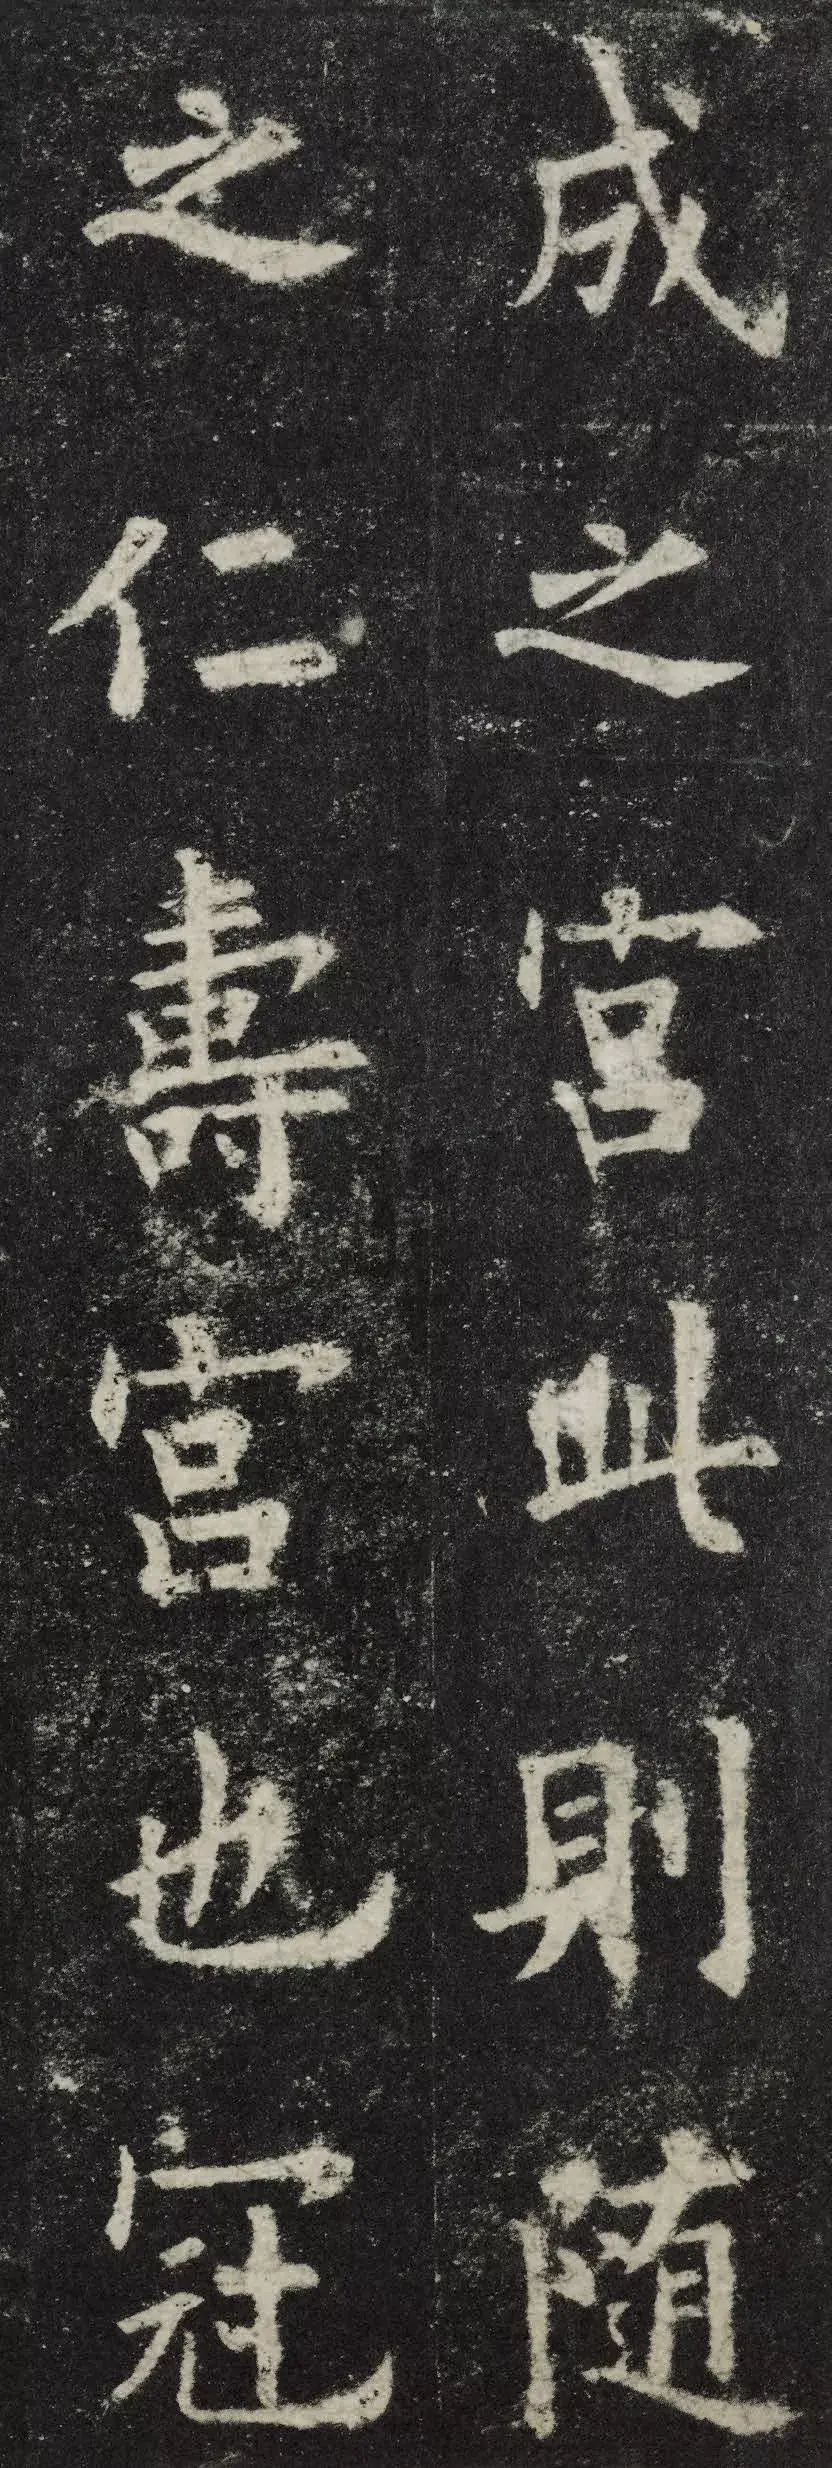 成之宮此則随
之仁壽宮也冠